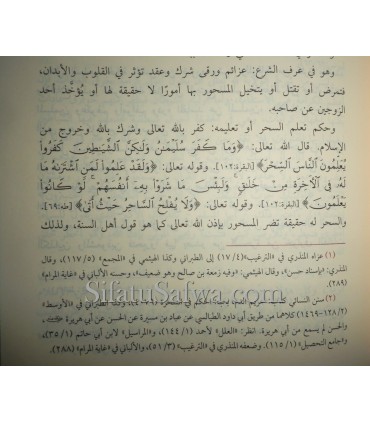 وهو في عرف الشرع: عزائم ورقى شرك وعقد تؤثر في القلوب والأبدان،
فتمرض أو تقتل أو يتخيل المسحور بها أمورًا لا حقيقة لها أو يُؤخَّذ أحد
الزوجين عن صاحبه.
وحكم تعلم السحر أو تعليمه: كفر بالله تعالى وشرك بالله وخروج من
الإسلام. قال الله تعالى: ﴿وَمَا كَفَرَ سُلَيْمَٰنُ وَلَٰكِنَّ ٱلشَّيَٰطِينَ كَفَرُوا۟
يُعَلِّمُونَ ٱلنَّاسَ ٱلسِّحْرَ﴾ [البقرة: ١٠٢]. وقوله تعالى: ﴿وَلَقَدْ عَلِمُوا۟ لَمَنِ ٱشْتَرَىٰهُ مَا
لَهُۥ فِى ٱلْـَٔاخِرَةِ مِنْ خَلَٰقٍ ۚ وَلَبِئْسَ مَا شَرَوْا۟ بِهِۦٓ أَنفُسَهُمْ ۚ لَوْ كَانُوا۟
يَعْلَمُونَ﴾ [البقرة: ١٠٢]. وقوله تعالى: ﴿وَلَا يُفْلِحُ ٱلسَّاحِرُ حَيْثُ أَتَىٰ﴾ [طه: ٦٩].
والسحر له حقيقة تضر المسحور بإذن الله تعالى كما هو قول أهل السنة، ولذلك
(١) عزاه المنذري في «الترغيب» (١٧/٤) إلى الطبراني وكذا الهيثمي في «المجمع» (١١٧/٥)، وقال
المنذري: «بإسناد حسن»، وقال الهيثمي: وفيه زمعة بن صالح وهو ضعيف»، وحسنه الألباني في «غاية المرام»
(٢٨٩)
SifatuSafwa.com
(٢) سنن النسائي
(١٢٨/٢-١٤٦٩) كلاهما من طريق أبي داود الطيالسي عن عباد بن ميسرة عن الحسن عن أبي هريرة
والحسن لم يسمع من أبي هريرة. انظر: «العلل» لأحمد (١٤٤/١)، و«المراسيل» لابن أبي حاتم (٣٥/١)،
و«جامع التحصيل» (١١٥/١)، وضعفه المنذري في «الترغيب» (٥١/٣)، والألباني في «غاية المرام» (٢٨٨).